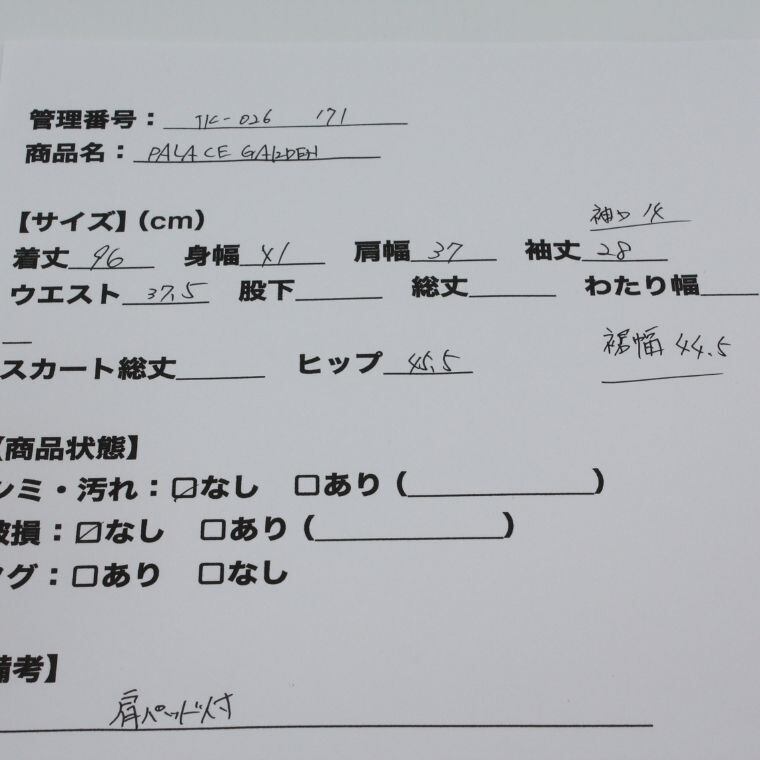 管理番号： TK-026 171
商品名： PALACE GARDEN
【サイズ】(cm)
袖口 14
着丈 96 身幅 41 肩幅 37 袖丈 28
ウエスト 37.5 股下 総丈 わたり幅
スカート総丈 ヒップ 45.5 裾幅 44.5
【商品状態】
シミ・汚れ：☑なし □あり( )
破損：☑なし □あり( )
タグ：□あり □なし
備考】
肩パッド付